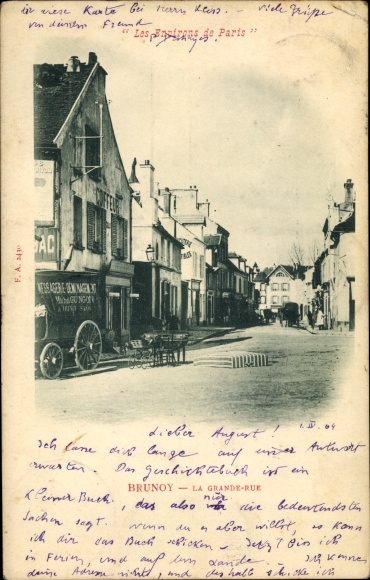 ist diese Karte bei Herrn Kess. – Viele Grüsse
von deinem Freund
"Les Environs de Paris"
F. A. 2430
MESSAGERIE DÉMÉNAGEMENT
COIFFEUR
1. IV. 04
Lieber August!
Ich lasse dich lange auf meine Antwort
warten. Das Geschichtsbuch ist ein
BRUNOY — LA GRANDE-RUE
kleines Buch, das also nur die bedeutendsten
Sachen sagt. Wenn du es aber willst, so kann
ich dir das Buch schicken – Jetzt bin ich
in Ferien, und auf dem Lande. Ich kenne
deine Adresse nicht, und deshalb schicke ich